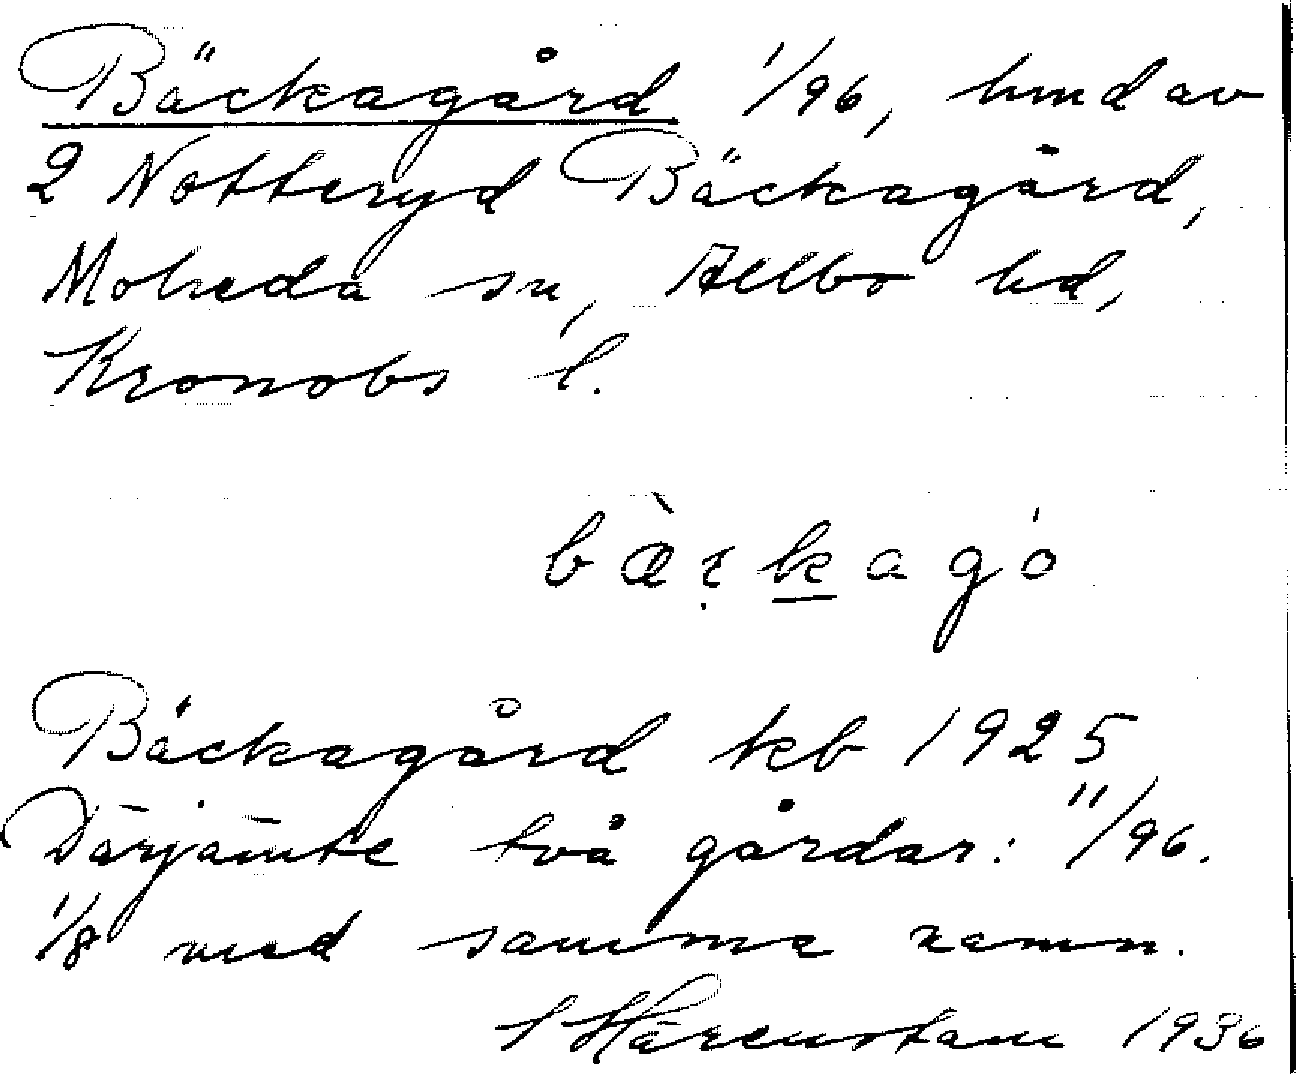 Bäckagård 1/96, hmd av
2 Notteryd Bäckagård,
Moheda sn, Allbo hd,
Kronobs l.
bæ̀kagó
Bäckagård kb 1925
Därjämte två gårdar: 11/96.
1/8 med samma namn.
S Härenstam 1936